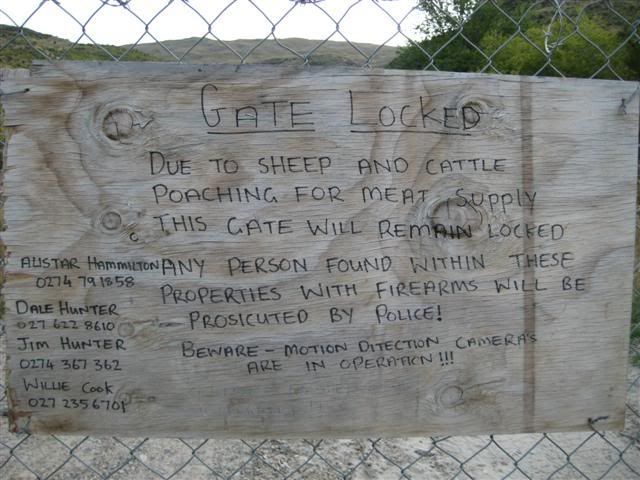 GATE LOCKED
DUE TO SHEEP AND CATTLE
POACHING FOR MEAT SUPPLY
THIS GATE WILL REMAIN LOCKED
ANY PERSON FOUND WITHIN THESE
PROPERTIES WITH FIREARMS WILL BE
PROSICUTED BY POLICE!
BEWARE - MOTION DITECTION CAMERA'S
ARE IN OPERATION!!!
ALISTAR HAMMILTON
0274 791858
DALE HUNTER
027 622 8610
JIM HUNTER
0274 367 362
WILLIE COOK
027 2356701